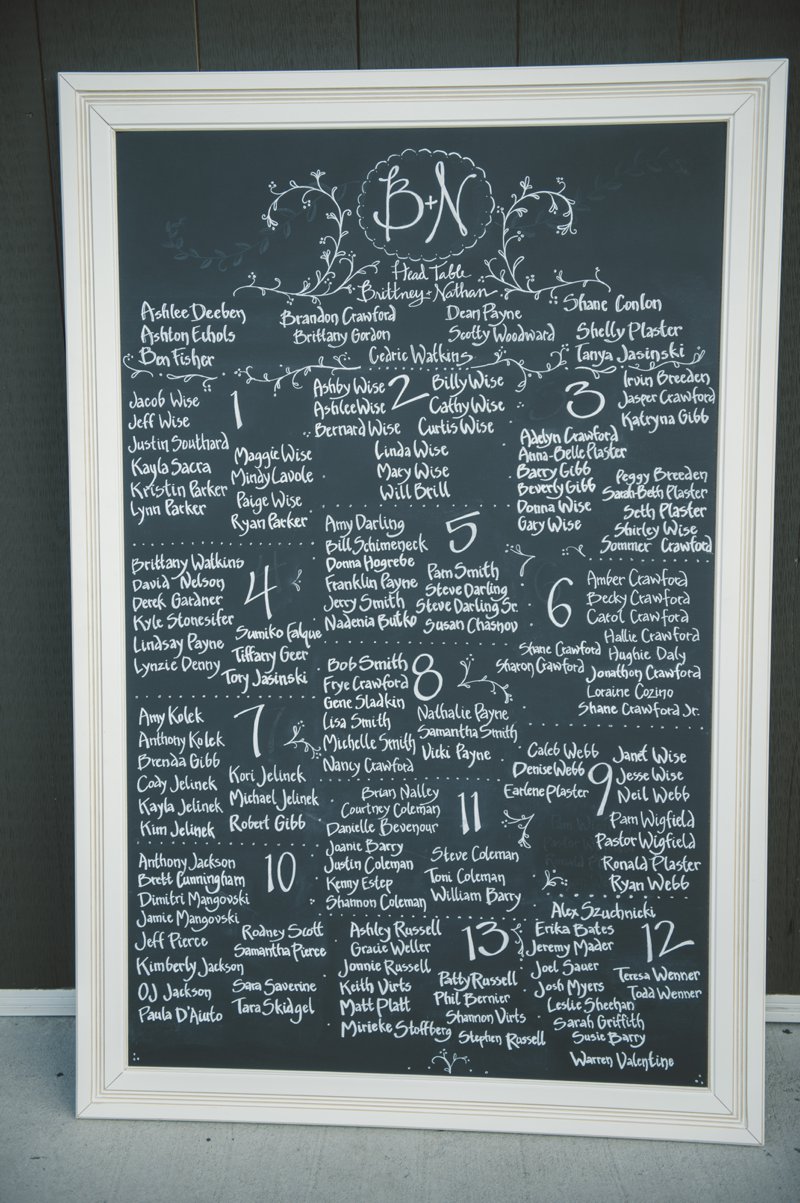 B+N
Head Table
Brittney + Nathan
Ashlee Deeben
Ashton Echols
Ben Fisher
Brandon Crawford
Brittany Gordon
Cedric Watkins
Dean Payne
Scotty Woodward
Shane Conlon
Shelly Plaster
Tanya Jasinski
1
Jacob Wise
Jeff Wise
Justin Southard
Kayla Sacra
Kristin Parker
Lynn Parker
Maggie Wise
Mindy Lavole
Paige Wise
Ryan Parker
2
Ashby Wise
Ashlee Wise
Bernard Wise
Billy Wise
Cathy Wise
Curtis Wise
Linda Wise
Mary Wise
Will Brill
3
Adelyn Crawford
Anna-Belle Plaster
Barry Gibb
Beverly Gibb
Donna Wise
Gary Wise
Irvin Breeden
Jasper Crawford
Katryna Gibb
Peggy Breeden
Sarah-Beth Plaster
Seth Plaster
Shirley Wise
Sommer Crawford
4
Brittany Watkins
David Nelson
Derek Gardner
Kyle Stonesifer
Lindsay Payne
Lynzie Denny
Sumiko Falque
Tiffany Geer
Tory Jasinski
5
Amy Darling
Bill Schimeneck
Donna Hogrebe
Franklin Payne
Jerry Smith
Nadenia Butko
Pam Smith
Steve Darling
Steve Darling Sr.
Susan Chasnov
6
Amber Crawford
Becky Crawford
Carol Crawford
Hallie Crawford
Hughie Daly
Jonathon Crawford
Loraine Cozino
Shane Crawford Jr.
Shane Crawford
Sharon Crawford
7
Amy Kolek
Anthony Kolek
Brenda Gibb
Cody Jelinek
Kayla Jelinek
Kim Jelinek
Kori Jelinek
Michael Jelinek
Robert Gibb
8
Bob Smith
Frye Crawford
Gene Sladkin
Lisa Smith
Michelle Smith
Nancy Crawford
Nathalie Payne
Samantha Smith
Vicki Payne
9
Caleb Webb
Denise Webb
Earlene Plaster
Janet Wise
Jesse Wise
Neil Webb
Pam Wigfield
Pastor Wigfield
Ronald Plaster
Ryan Webb
10
Anthony Jackson
Brett Cunningham
Dimitri Mangovski
Jamie Mangovski
Jeff Pierce
Kimberly Jackson
OJ Jackson
Paula D'Aiuto
Rodney Scott
Samantha Pierce
Sara Saverine
Tara Skidgel
11
Brian Nalley
Courtney Coleman
Danielle Bevenour
Joanie Barry
Justin Coleman
Kenny Estep
Shannon Coleman
Steve Coleman
Toni Coleman
William Barry
13
Ashley Russell
Gracie Weller
Jonnie Russell
Keith Virts
Matt Platt
Mirieke Stoffberg
Patty Russell
Phil Bernier
Shannon Virts
Stephen Russell
12
Alex Szuchnicki
Erika Bates
Jeremy Mader
Joel Sauer
Josh Myers
Leslie Sheehan
Sarah Griffith
Susie Barry
Teresa Wenner
Todd Wenner
Warren Valentine